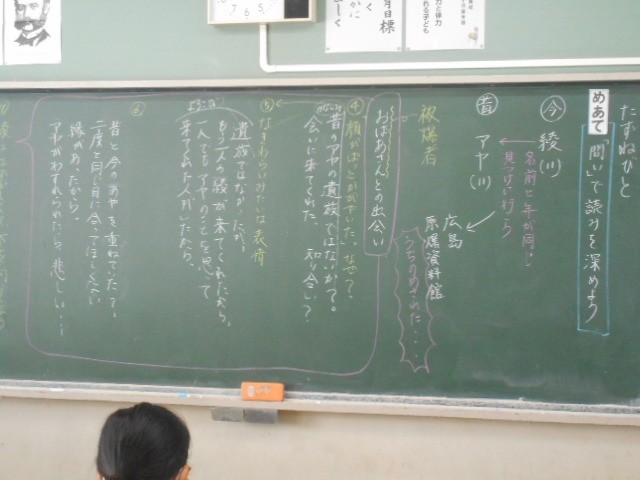 たずねびと
めあて 「問い」で読みを深めよう
今 綾(川)
名前と年が同じ
見つけに行こう
昔 アヤ(川)
広島
原爆資料館
うちのめされた・・・・
被爆者
おばあさんとの出会い
④顔がぱっとかがやいた。なぜ?
昔のアヤの遺族ではないか?。
会いに来てくれた、知り合い?
⑤なきわらいみたいな表情
遺族ではなかったが、
もう一人の綾が来てくれたから。
一人でもアヤのことを思って
来てくれた人がいたから。
⑥
昔と今のあやを重ねていた?。
二度と同じ目に合ってほしくない
縁があったから。
アヤがわすれられたら、悲しい・・・